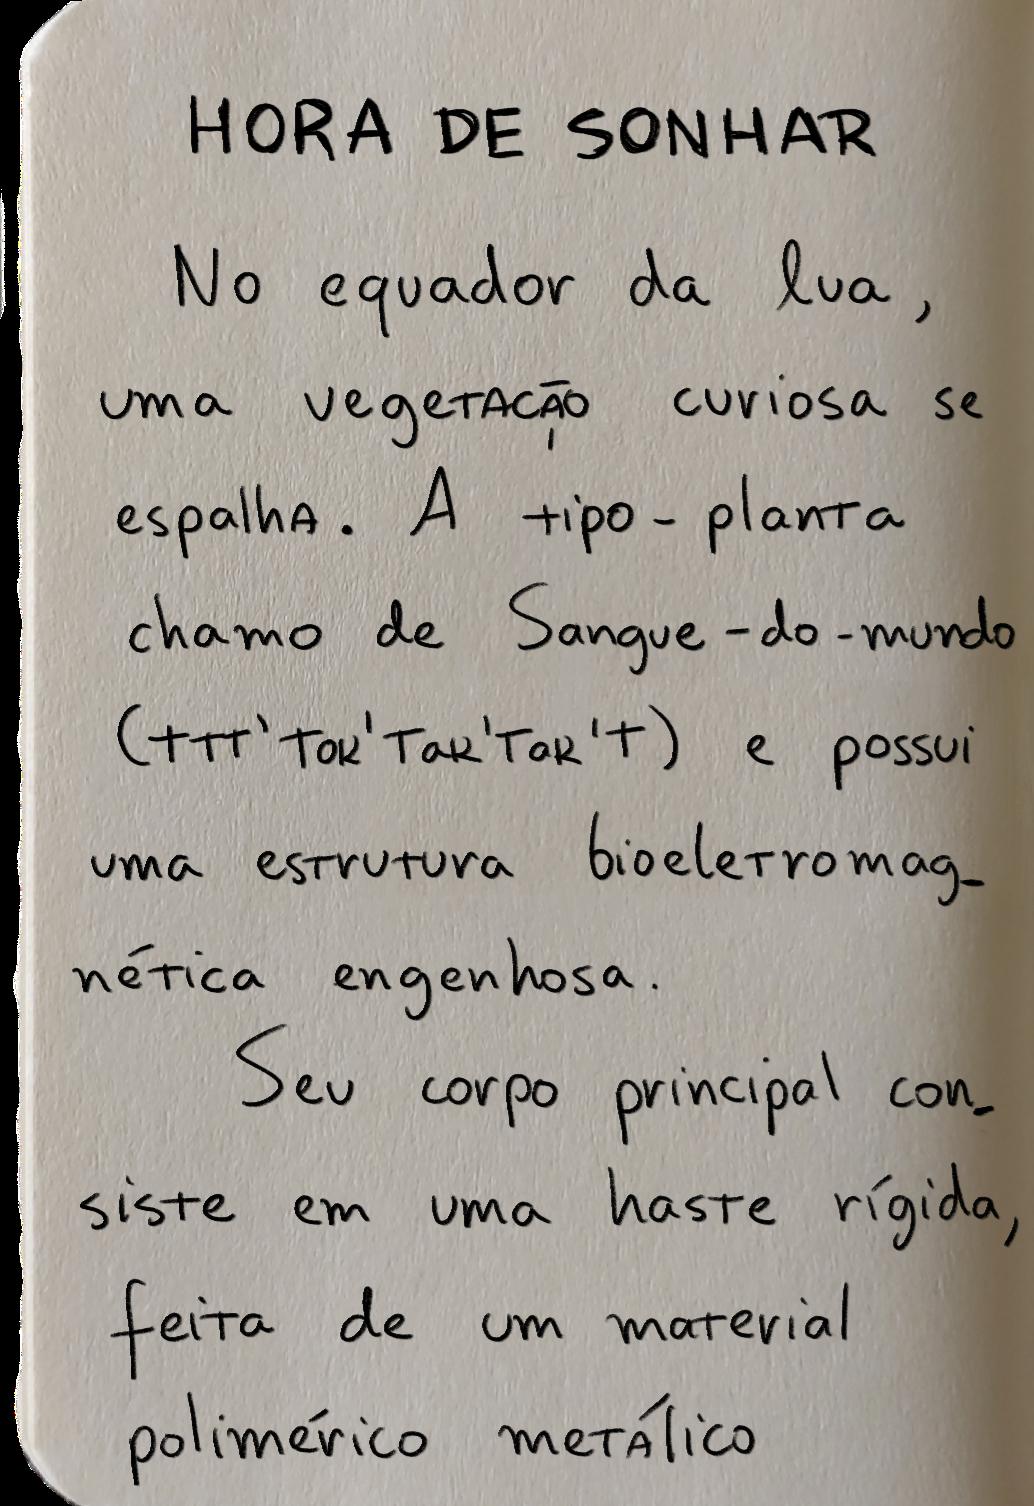 HORA DE SONHAR
No equador da lua,
uma vegetação curiosa se
espalha. A tipo-planta
chamo de Sangue-do-mundo
(ttt'tok'tak'tak't) e possui
uma estrutura bioeletromag-
nética engenhosa.
Seu corpo principal con-
siste em uma haste rígida,
feita de um material
polimérico metálico